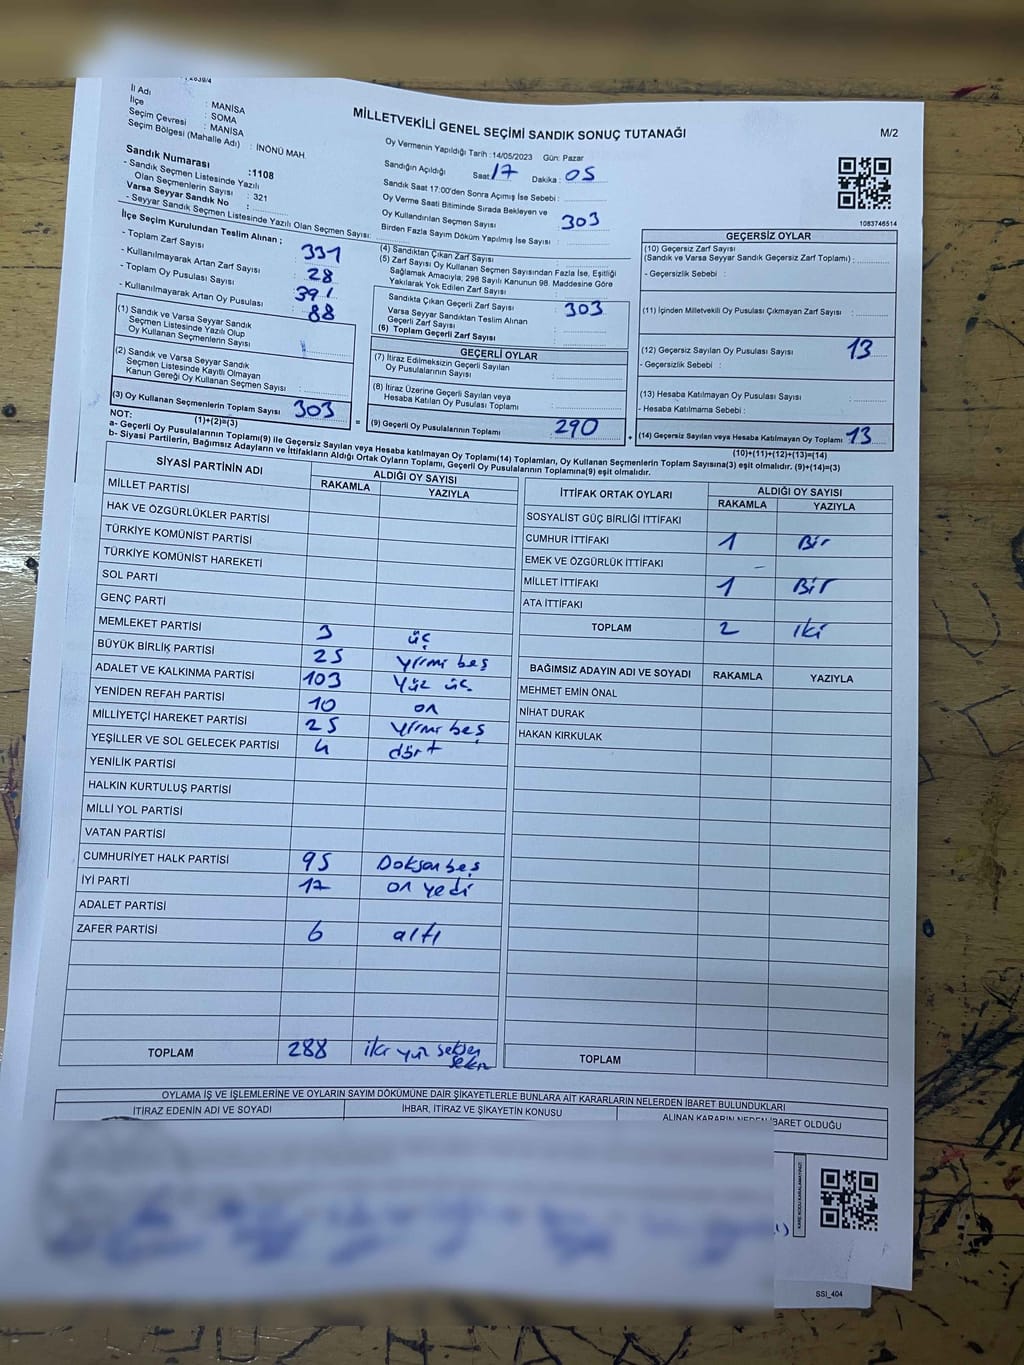 MİLLETVEKİLİ GENEL SEÇİMİ SANDIK SONUÇ TUTANAĞI
M/2
İl Adı : MANİSA
İlçe : SOMA
Seçim Çevresi : MANİSA
Seçim Bölgesi (Mahalle Adı) : İNÖNÜ MAH
Sandık Numarası :1108
- Sandık Seçmen Listesinde Yazılı
Olan Seçmenlerin Sayısı : 321
Varsa Seyyar Sandık No :
- Seyyar Sandık Seçmen Listesinde Yazılı Olan Seçmen Sayısı:
Oy Vermenin Yapıldığı Tarih :14/05/2023 Gün: Pazar
Sandığın Açıldığı Saat 17 Dakika : 05
Sandık Saat 17:00'den Sonra Açımış İse Sebebi :
Oy Verme Saati Bitiminde Sırada Bekleyen ve
Oy Kullandırılan Seçmen Sayısı 303
Birden Fazla Sayım Döküm Yapılmış İse Sayısı :
1083746514
İlçe Seçim Kurulundan Teslim Alınan ;
- Toplam Zarf Sayısı 331
- Kullanılmayarak Artan Zarf Sayısı 28
- Toplam Oy Pusulası Sayısı 391
- Kullanılmayarak Artan Oy Pusulası 88
(1) Sandık ve Varsa Seyyar Sandık
Seçmen Listesinde Yazılı Olup
Oy Kullanan Seçmenlerin Sayısı
(2) Sandık ve Varsa Seyyar Sandık
Seçmen Listesinde Kayıtlı Olmayan
Kanun Gereği Oy Kullanan Seçmen Sayısı :
(3) Oy Kullanan Seçmenlerin Toplam Sayısı 303
(1)+(2)=(3)
(4) Sandıktan Çıkan Zarf Sayısı :
(5) Zarf Sayısı Oy Kullanan Seçmen Sayısından Fazla İse, Eşitliği
Sağlamak Amacıyla; 298 Sayılı Kanunun 98. Maddesine Göre
Yakılarak Yok Edilen Zarf Sayısı :
Sandıkta Çıkan Geçerli Zarf Sayısı : 303
Varsa Seyyar Sandıktan Teslim Alınan
Geçerli Zarf Sayısı :
(6) Toplam Geçerli Zarf Sayısı :
GEÇERLİ OYLAR
(7) İtiraz Edilmeksizin Geçerli Sayılan
Oy Pusulalarının Sayısı :
(8) İtiraz Üzerine Geçerli Sayılan veya
Hesaba Katılan Oy Pusulası Toplamı :
(9) Geçerli Oy Pusulalarının Toplamı 290
GEÇERSİZ OYLAR
(10) Geçersiz Zarf Sayısı
(Sandık ve Varsa Seyyar Sandık Geçersiz Zarf Toplamı) :
- Geçersizlik Sebebi :
(11) İçinden Milletvekili Oy Pusulası Çıkmayan Zarf Sayısı :
(12) Geçersiz Sayılan Oy Pusulası Sayısı 13
- Geçersizlik Sebebi :
(13) Hesaba Katılmayan Oy Pusulası Sayısı :
- Hesaba Katılmama Sebebi :
(14) Geçersiz Sayılan veya Hesaba Katılmayan Oy Toplamı 13
(10)+(11)+(12)+(13)=(14)
NOT:
a- Geçerli Oy Pusulalarının Toplamı(9) ile Geçersiz Sayılan veya Hesaba katılmayan Oy Toplamı(14) Toplamları, Oy Kullanan Seçmenlerin Toplam Sayısına(3) eşit olmalıdır. (9)+(14)=(3)
b- Siyasi Partilerin, Bağımsız Adayların ve İttifakların Aldığı Ortak Oyların Toplamı, Geçerli Oy Pusulalarının Toplamına(9) eşit olmalıdır.
SİYASİ PARTİNİN ADI ALDIĞI OY SAYISI
RAKAMLA YAZIYLA
MİLLET PARTİSİ
HAK VE ÖZGÜRLÜKLER PARTİSİ
TÜRKİYE KOMÜNİST PARTİSİ
TÜRKİYE KOMÜNİST HAREKETİ
SOL PARTİ
GENÇ PARTİ
MEMLEKET PARTİSİ 3 üç
BÜYÜK BİRLİK PARTİSİ 25 yirmi beş
ADALET VE KALKINMA PARTİSİ 103 Yüz üç
YENİDEN REFAH PARTİSİ 10 on
MİLLİYETÇİ HAREKET PARTİSİ 25 yirmi beş
YEŞİLLER VE SOL GELECEK PARTİSİ 4 dört
YENİLİK PARTİSİ
HALKIN KURTULUŞ PARTİSİ
MİLLİ YOL PARTİSİ
VATAN PARTİSİ
CUMHURİYET HALK PARTİSİ 95 Doksan beş
İYİ PARTİ 17 on yedi
ADALET PARTİSİ
ZAFER PARTİSİ 6 altı
TOPLAM 288 iki yüz seksen
sekiz
İTTİFAK ORTAK OYLARI ALDIĞI OY SAYISI
RAKAMLA YAZIYLA
SOSYALİST GÜÇ BİRLİĞİ İTTİFAKI
CUMHUR İTTİFAKI 1 Bir
EMEK VE ÖZGÜRLÜK İTTİFAKI -
MİLLET İTTİFAKI 1 Bir
ATA İTTİFAKI
TOPLAM 2 iki
BAĞIMSIZ ADAYIN ADI VE SOYADI RAKAMLA YAZIYLA
MEHMET EMİN ÖNAL
NİHAT DURAK
HAKAN KIRKULAK
TOPLAM
OYLAMA İŞ VE İŞLEMLERİNE VE OYLARIN SAYIM DÖKÜMÜNE DAİR ŞİKAYETLERLE BUNLARA AİT KARARLARIN NELERDEN İBARET BULUNDUKLARI
İTİRAZ EDENİN ADI VE SOYADI İHBAR, İTİRAZ VE ŞİKAYETİN KONUSU ALINAN KARARIN NEDEN İBARET OLDUĞU
KARE KODU KARALAMAYINIZ!
SSI_404